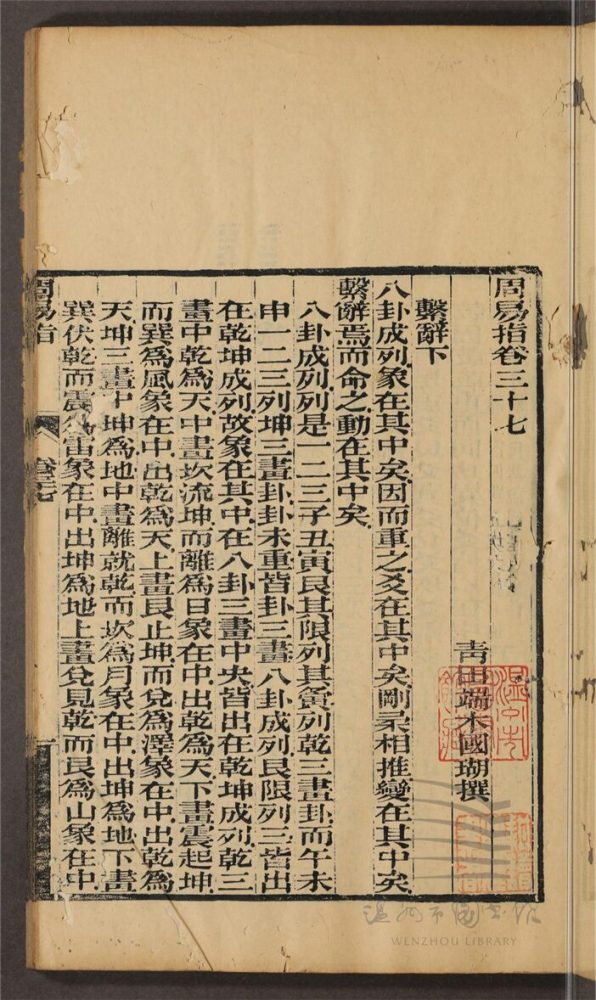 周易指卷三十七
青田端木國瑚撰
繫辭下
八卦成列象在其中矣因而重之爻在其中矣剛柔相推變在其中矣
繫辭焉而命之動在其中矣
八卦成列列是一二三子丑寅艮其限列其夤列乾三畫卦而午未
申一二三列坤三畫卦卦未重皆卦三畫八卦成列艮限列三皆出
在乾坤成列故象在其中在八卦三畫中央皆出在乾坤成列乾三
畫中乾爲天中畫坎流坤而離爲日象在中出乾爲天下畫震起坤
而巽爲風象在中出乾爲天上畫艮止坤而兌爲澤象在中出乾爲
天坤三畫中坤爲地中畫離就乾而坎爲月象在中出坤爲地下畫
巽伏乾而震爲雷象在中出坤爲地上畫兌見乾而艮爲山象在中
周易指
卷三七
溫州市圖書館
WENZHOU LIBRARY